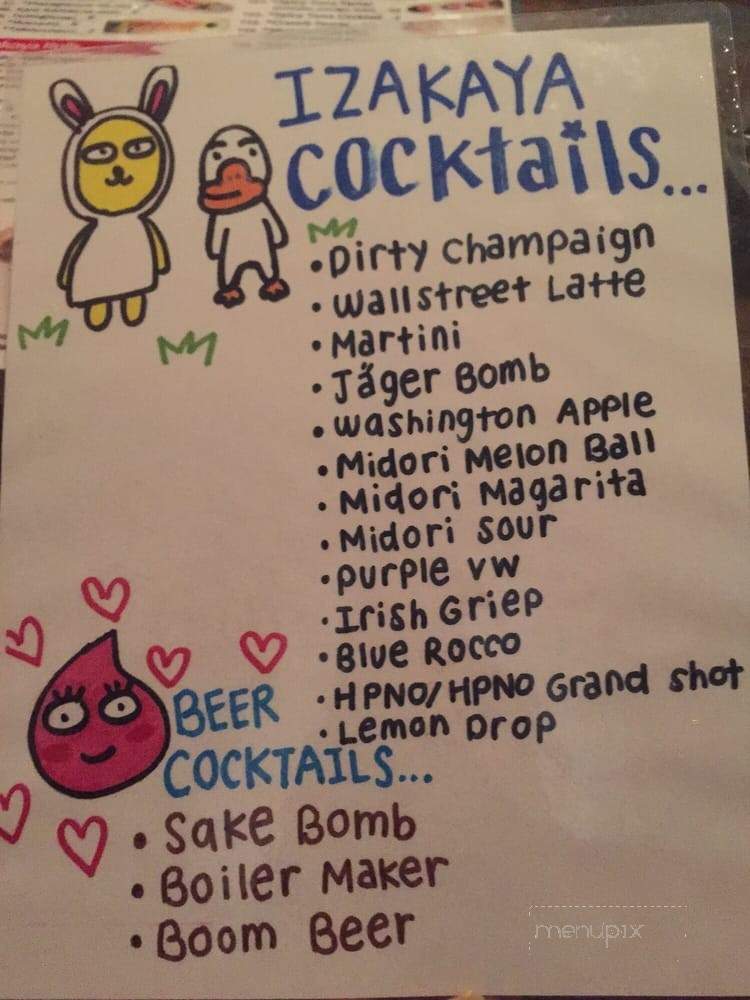 IZAKAYA
Cocktails...
• Dirty Champaign
• Wallstreet Latte
• Martini
• Jäger Bomb
• Washington Apple
• Midori Melon Ball
• Midori Magarita
• Midori Sour
• Purple VW
• Irish Griep
• Blue Rocco
• HPNO/HPNO Grand shot
• Lemon Drop
BEER
COCKTAILS...
• Sake Bomb
• Boiler Maker
• Boom Beer
menupix